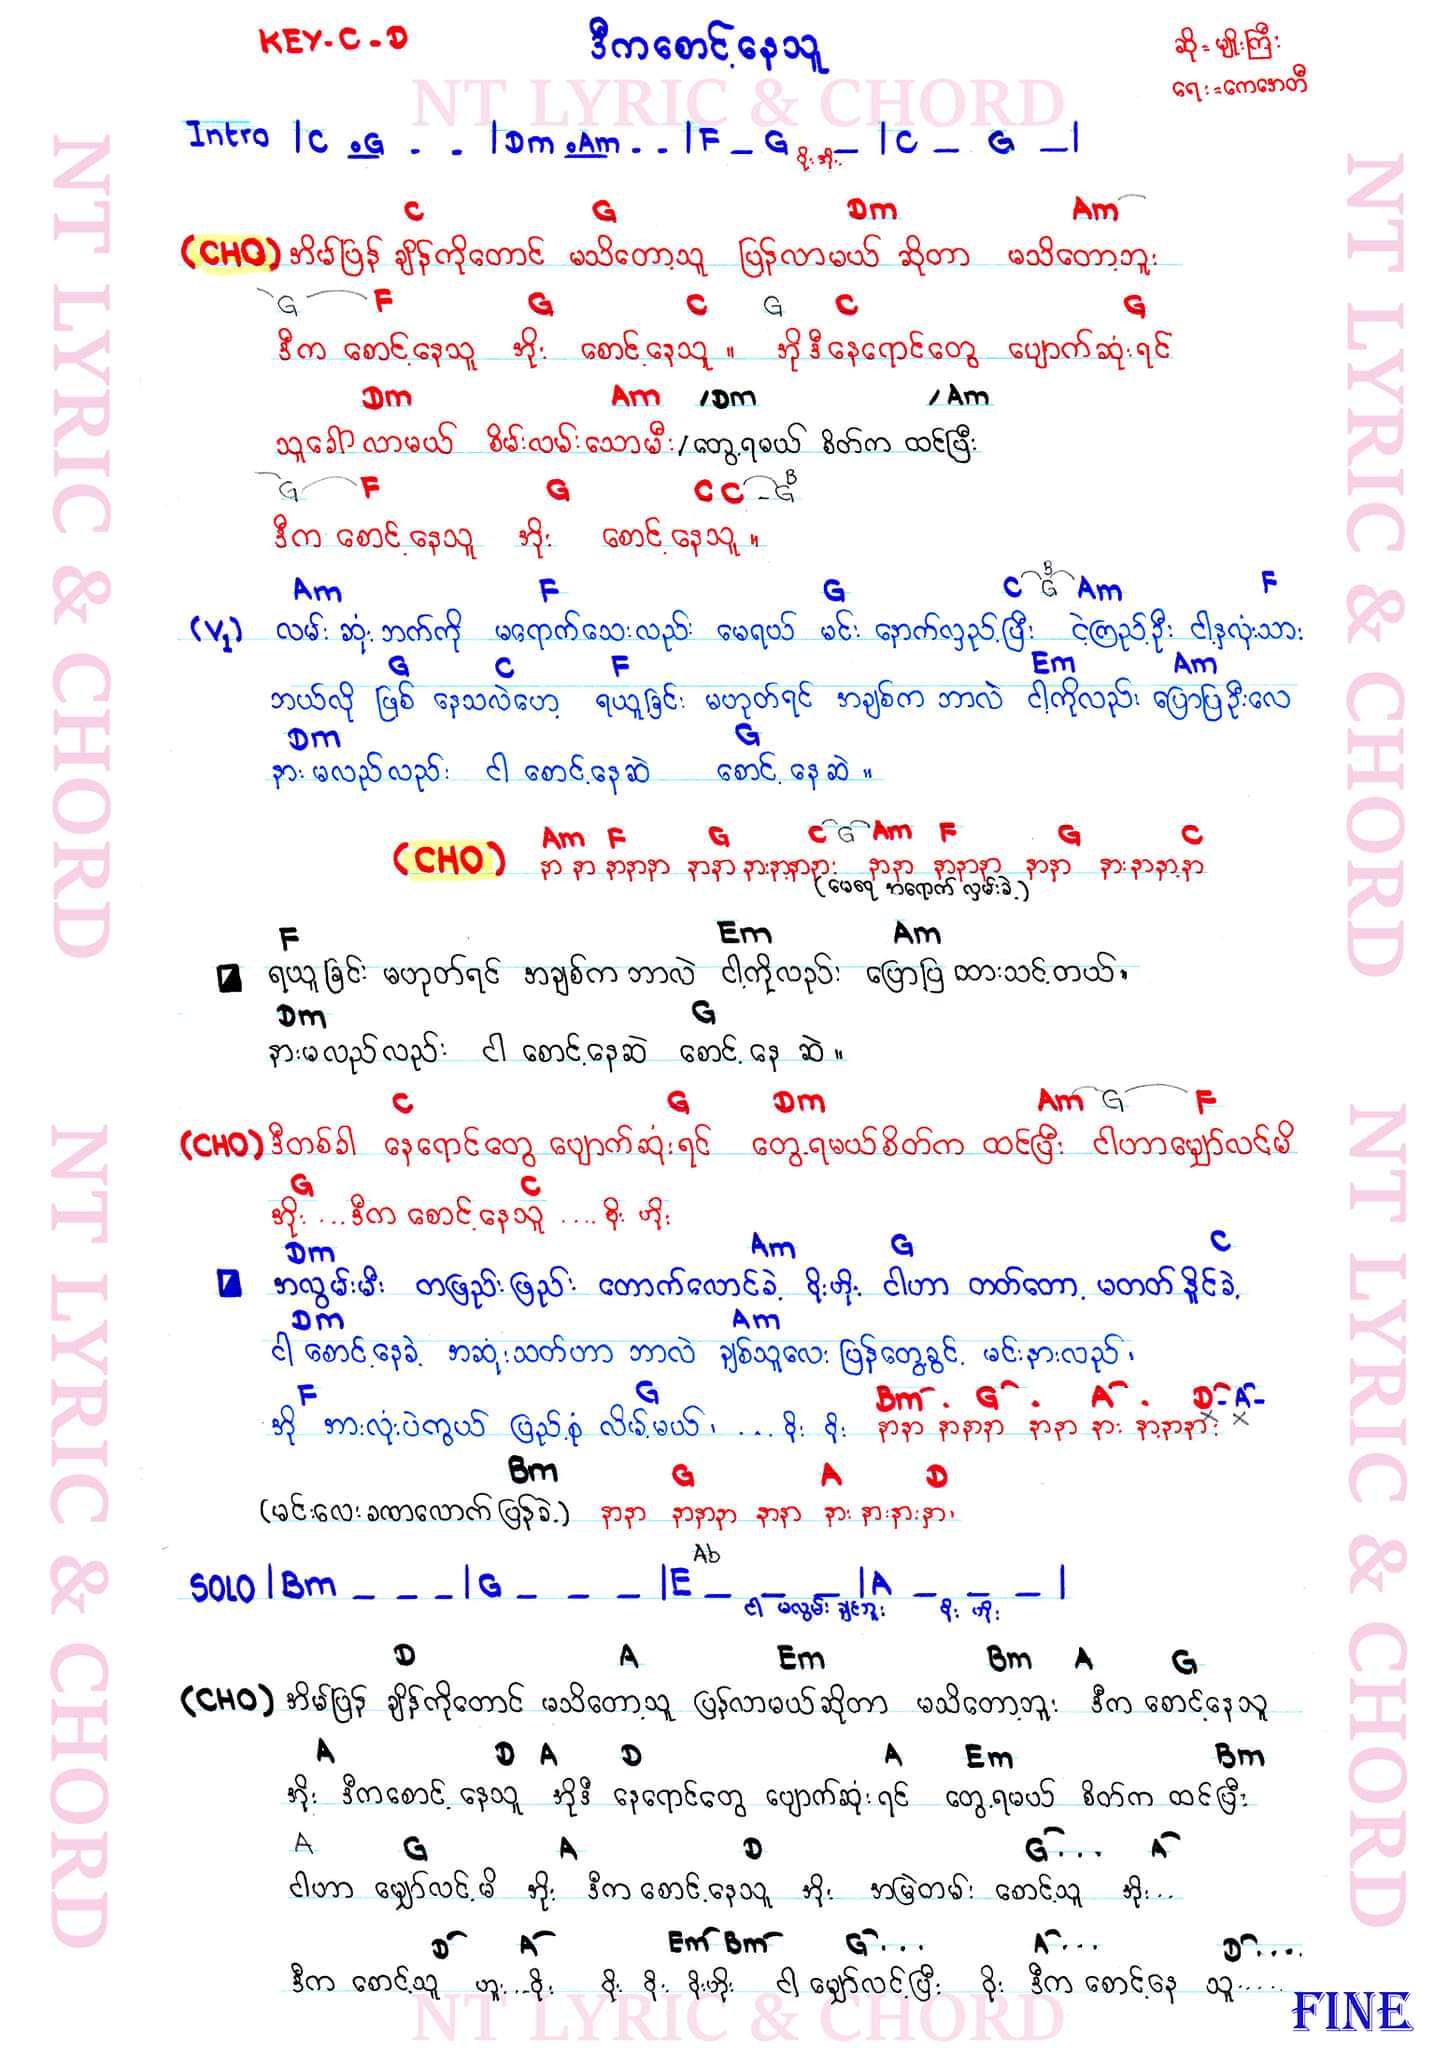 KEY-C-D
ဒီကစောင့်နေသူ
ဆို = မျိုးကြီး
ရေး = ကေအေတီ
NT LYRIC & CHORD
NT LYRIC & CHORD
NT LYRIC & CHORD
Intro |C .G . . |Dm .Am . . |F _ G _ |C _ G _|
အိုး အိုး
C G Dm Am
(CHO) အိမ်ပြန် ချိန်ကိုတောင် မသိတော့သူ ပြန်လာမယ် ဆိုတာ မသိတော့ဘူး
G F G C G C G
ဒီက စောင့်နေသူ အိုး စောင့်နေသူ ။ အိုဒီနေရောင်တွေ ပျောက်ဆုံးရင်
Dm Am /Dm /Am
သူခေါ်လာမယ် စိမ်းလမ်းသောမီး/တွေ့ရမယ် စိတ်က ထင်ပြီး
G F G C C - G B
ဒီက စောင့်နေသူ အိုး စောင့်နေသူ ။
Am F G C G B Am F
(V1) လမ်းဆုံးဘက်ကို မရောက်သေးလည်း မေရယ် မင်း နောက်လှည့်ပြီး ငဲ့ကြည့်ဦး ငါ့နှလုံးသား
G C F Em Am
ဘယ်လို ဖြစ် နေသလဲဟေ့ ရယူခြင်း မဟုတ်ရင် အချစ်က ဘာလဲ ငါ့ကိုလည်း ပြောပြဦးလေ
Dm G
နားမလည်လည်း ငါ စောင့်နေဆဲ စောင့်နေဆဲ ။
Am F G C G Am F G C
(CHO) နာ နာ နာနာနာ နာနာ နားနာ့နာနား နာနာ နာနာနာ နာနာ နားနာနာ့နာ
(မေရေ အရောက် လှမ်းခဲ့)
F Em Am
ရယူခြင်း မဟုတ်ရင် အချစ်က ဘာလဲ ငါ့ကိုလည်း ပြောပြ ထားသင့်တယ်၊
Dm G
နားမလည်လည်း ငါ စောင့်နေဆဲ စောင့်နေ ဆဲ ။
C G Dm Am G F
(CHO) ဒီတစ်ခါ နေရောင်တွေ ပျောက်ဆုံးရင် တွေ့ရမယ်စိတ်က ထင်ပြီး ငါဟာမျှော်လင့်မိ
G C
အိုး ...ဒီက စောင့်နေသူ .... အိုး ဟိုး
Dm Am G C
အလွမ်းမီး တဖြည်းဖြည်း တောက်လောင်ခဲ့ အိုးဟိုး ငါဟာ တတ်တော့ မတတ်နိူင်ခဲ့
Dm Am
ငါ စောင့်နေခဲ့ အဆုံးသတ်ဟာ ဘာလဲ ချစ်သူလေး ပြန်တွေ့ခွင့် မင်းနားလည်၊
F G Bm . G . A . D-A-
အို အားလုံးပဲကွယ် ပြည့်စုံ လိမ့်မယ်၊ ... အိုး အိုး နာနာ နာနာနာ နာနာ နား နာ့နာနား
Bm G A D
(မင်းလေးခဏလောက် ပြန်ခဲ့) နာနာ နာနာနာ နာနာ နား နားနားနာ၊
Ab
SOLO |Bm _ _ _ |G _ _ _ |E _ _ _ |A _ _ _ |
ငါ မလွမ်း ချင်ဘူး အိုး ဟိုး
D A Em Bm A G
(CHO) အိမ်ပြန် ချိန်ကိုတောင် မသိတော့သူ ပြန်လာမယ်ဆိုတာ မသိတော့ဘူး ဒီက စောင့်နေသူ
A D A D A Em Bm
အိုး ဒီကစောင့် နေသူ အိုဒီ နေရောင်တွေ ပျောက်ဆုံးရင် တွေ့ရမယ် စိတ်က ထင်ပြီး
A G A D G... A
ငါဟာ မျှော်လင့်မိ အိုး ဒီက စောင့်နေသူ အိုး အမြဲတမ်း စောင့်သူ အိုး..
D A Em Bm G... A... D....
ဒီက စောင့်သူ ဟူး...အိုး အိုး အိုး အိုးဟိုး ငါ မျှော်လင့်ပြီး အိုး ဒီက စောင့်နေ သူ.....
NT LYRIC & CHORD
NT LYRIC & CHORD
NT LYRIC & CHORD
FINE